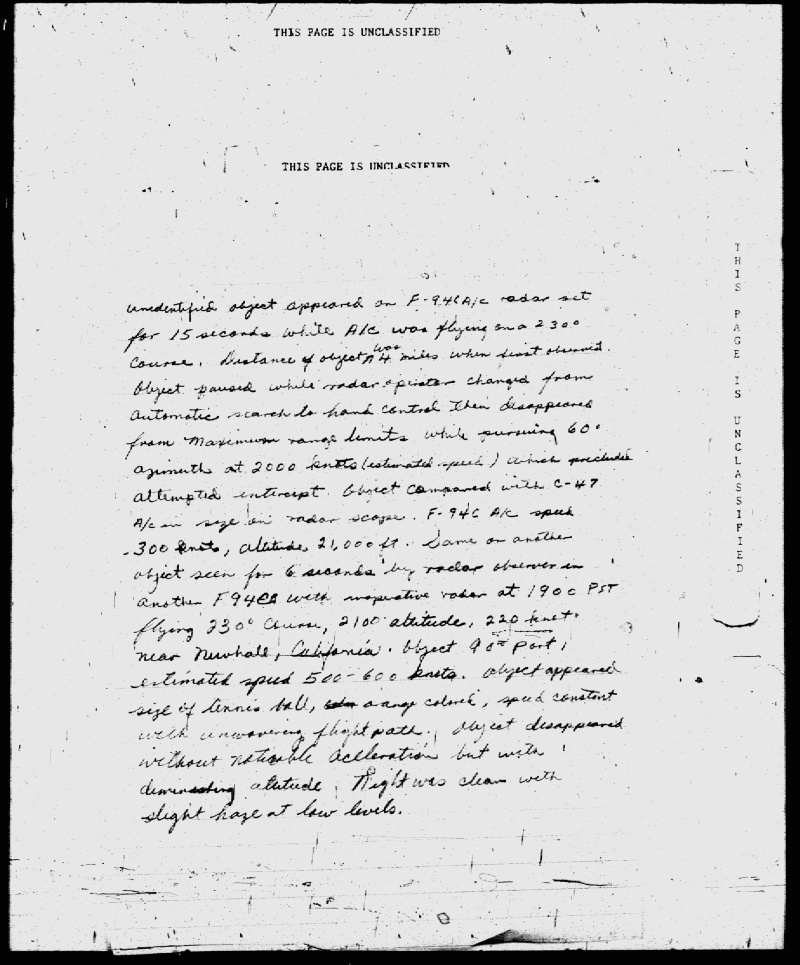 THIS PAGE IS UNCLASSIFIED
THIS PAGE IS UNCLASSIFIED
unidentified object appeared on F-94C A/c radar set
for 15 seconds while A/c was flying on a 230°
course. Distance of object was 4 miles when first observed.
Object paused while radar operator changed from
automatic search to hand control then disappeared
from maximum range limits while pursuing 60°
azimuth at 2000 knots (estimated speed) which precluded
attempted intercept. Object compared with C-47
A/c in size on radar scope. F-94C A/c speed
300 knots, altitude 21,000 ft. Same or another
object seen for 6 seconds by radar observer in
another F94C with inoperative radar at 1900 PST
flying 230° course, 2100 altitude, 220 knots
near Newhall, California. Object 90° port,
estimated speed 500-600 knots. Object appeared
size of tennis ball, orange colored, speed constant
with unwavering flight path. Object disappeared
without noticable acelleration but with
altitude. Night was clear with
slight haze at low levels.
THIS PAGE IS UNCLASSIFIED